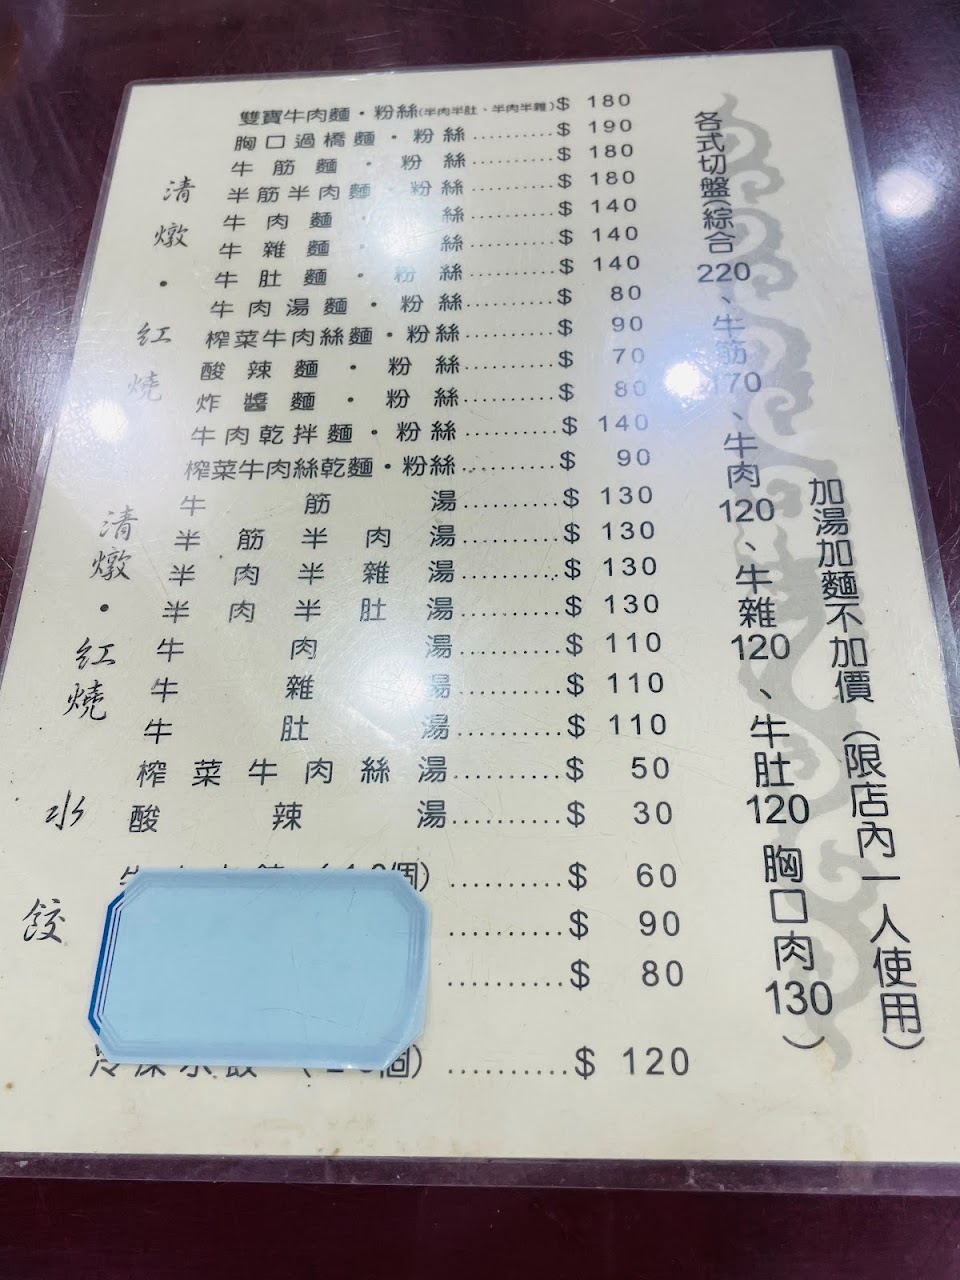 雙寶牛肉麵·粉絲(半肉半肚、半肉半雜)$ 180
胸口過橋麵·粉絲..........$ 190
牛筋麵·粉絲..........$ 180
半筋半肉麵·粉絲..........$ 180
牛肉麵· 絲..........$ 140
牛雜麵· 絲..........$ 140
牛肚麵·粉絲..........$ 140
牛肉湯麵·粉絲..........$ 80
榨菜牛肉絲麵·粉絲..........$ 90
酸辣麵·粉絲..........$ 70
炸醬麵·粉絲..........$ 80
牛肉乾拌麵·粉絲..........$ 140
榨菜牛肉絲乾麵·粉絲..........$ 90
清燉·紅燒
牛筋湯..........$ 130
半筋半肉湯..........$ 130
半肉半雜湯..........$ 130
半肉半肚湯..........$ 130
牛肉湯..........$ 110
牛雜湯..........$ 110
牛肚湯..........$ 110
榨菜牛肉絲湯..........$ 50
酸辣湯..........$ 30
清燉·紅燒
水餃
個)..........$ 60
..........$ 90
..........$ 80
個)..........$ 120
各式切盤(綜合220、牛筋170、牛肉120、牛雜120、牛肚120胸口肉130)
加湯加麵不加價(限店內一人使用)